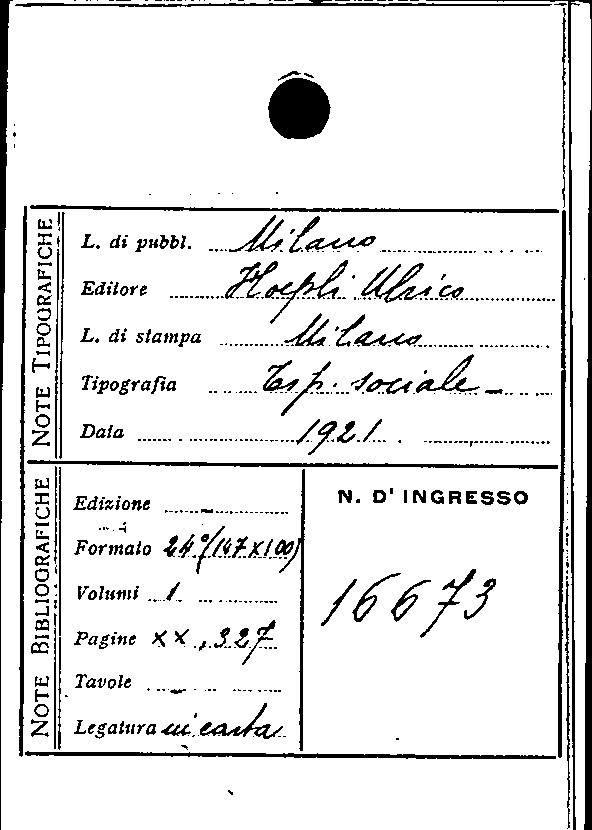 NOTE TIPOGRAFICHE
L. di pubbl. Milano
Editore Hoepli Ulrico
L. di stampa Milano
Tipografia Tip. sociale
Data 1921
NOTE BIBLIOGRAFICHE
Edizione -
Formato 24° (147 x 100)
Volumi 1
Pagine XX, 327
Tavole -
Legatura in carta
N. D' INGRESSO
16673